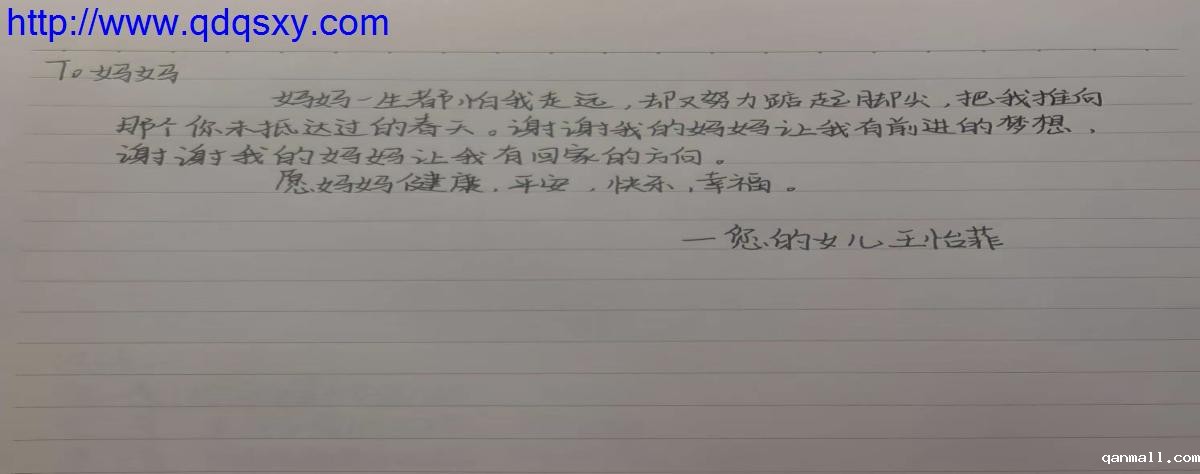 http://www.qdqsxy.com
To 妈妈
妈妈一生都怕我走远，却又努力踮起脚尖，把我推向
那个你未抵达过的春天。谢谢我的妈妈让我有前进的梦想，
谢谢我的妈妈让我有回家的方向。
愿妈妈健康，平安，快乐，幸福。
—您的女儿王怡菲
qanmall.com